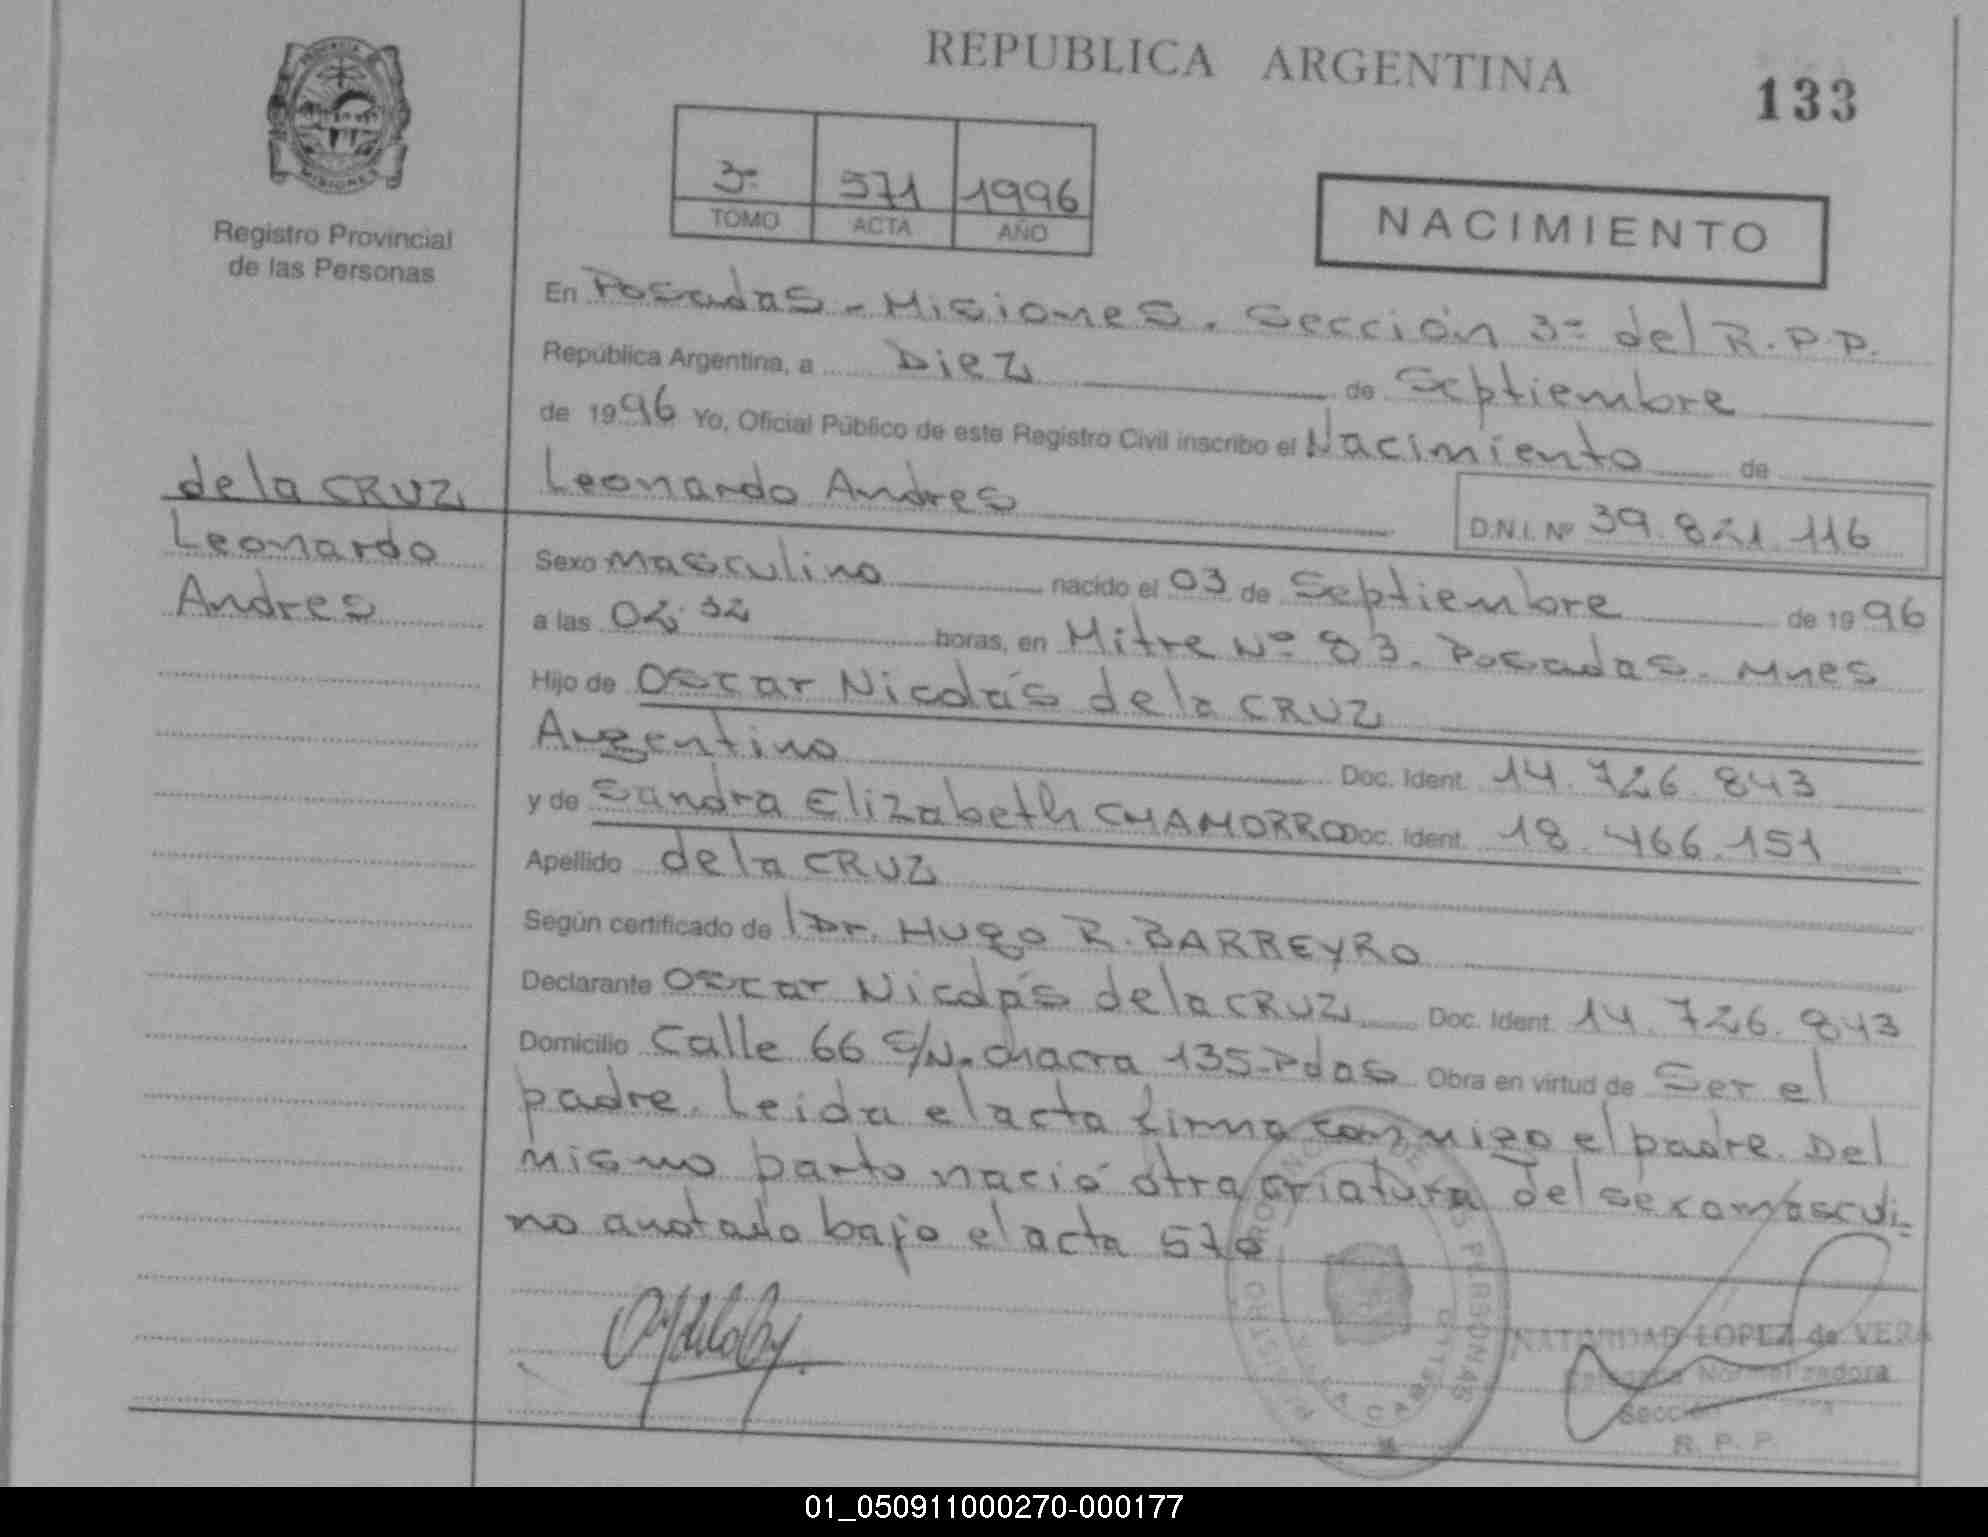 REPUBLICA ARGENTINA
133
3º 571 1996
TOMO ACTA AÑO
NACIMIENTO
MISIONES
Registro Provincial
de las Personas
En Posadas - Misiones. Sección 3º del R.P.P.
República Argentina, a Diez de Septiembre
de 1996 Yo, Oficial Público de este Registro Civil inscribo el Nacimiento de
de la CRUZ
Leonardo
Andres
Leonardo Andres
D.N.I. Nº 39.821.116
Sexo Masculino nacido el 03 de Septiembre de 1996
a las 02:32 horas, en Mitre Nº 83. Posadas. Mnes
Hijo de Oscar Nicolás de la CRUZ
Argentino Doc. Ident. 14.726.843
y de Sandra Elizabeth CHAMORRO Doc. Ident. 18.466.151
Apellido de la CRUZ
Según certificado de Dr. Hugo R. BARREYRO
Declarante Oscar Nicolás de la CRUZ Doc. Ident. 14.726.843
Domicilio Calle 66 S/N. chacra 135-Pdas Obra en virtud de Ser el
padre. Leida el acta firma conmigo el padre. Del
mismo parto nació otra criatura del sexo masculi-
no anotado bajo el acta 570
NATIVIDAD LOPEZ de VERA
Normalizadora
Sección
R. P. P.
01_050911000270-000177